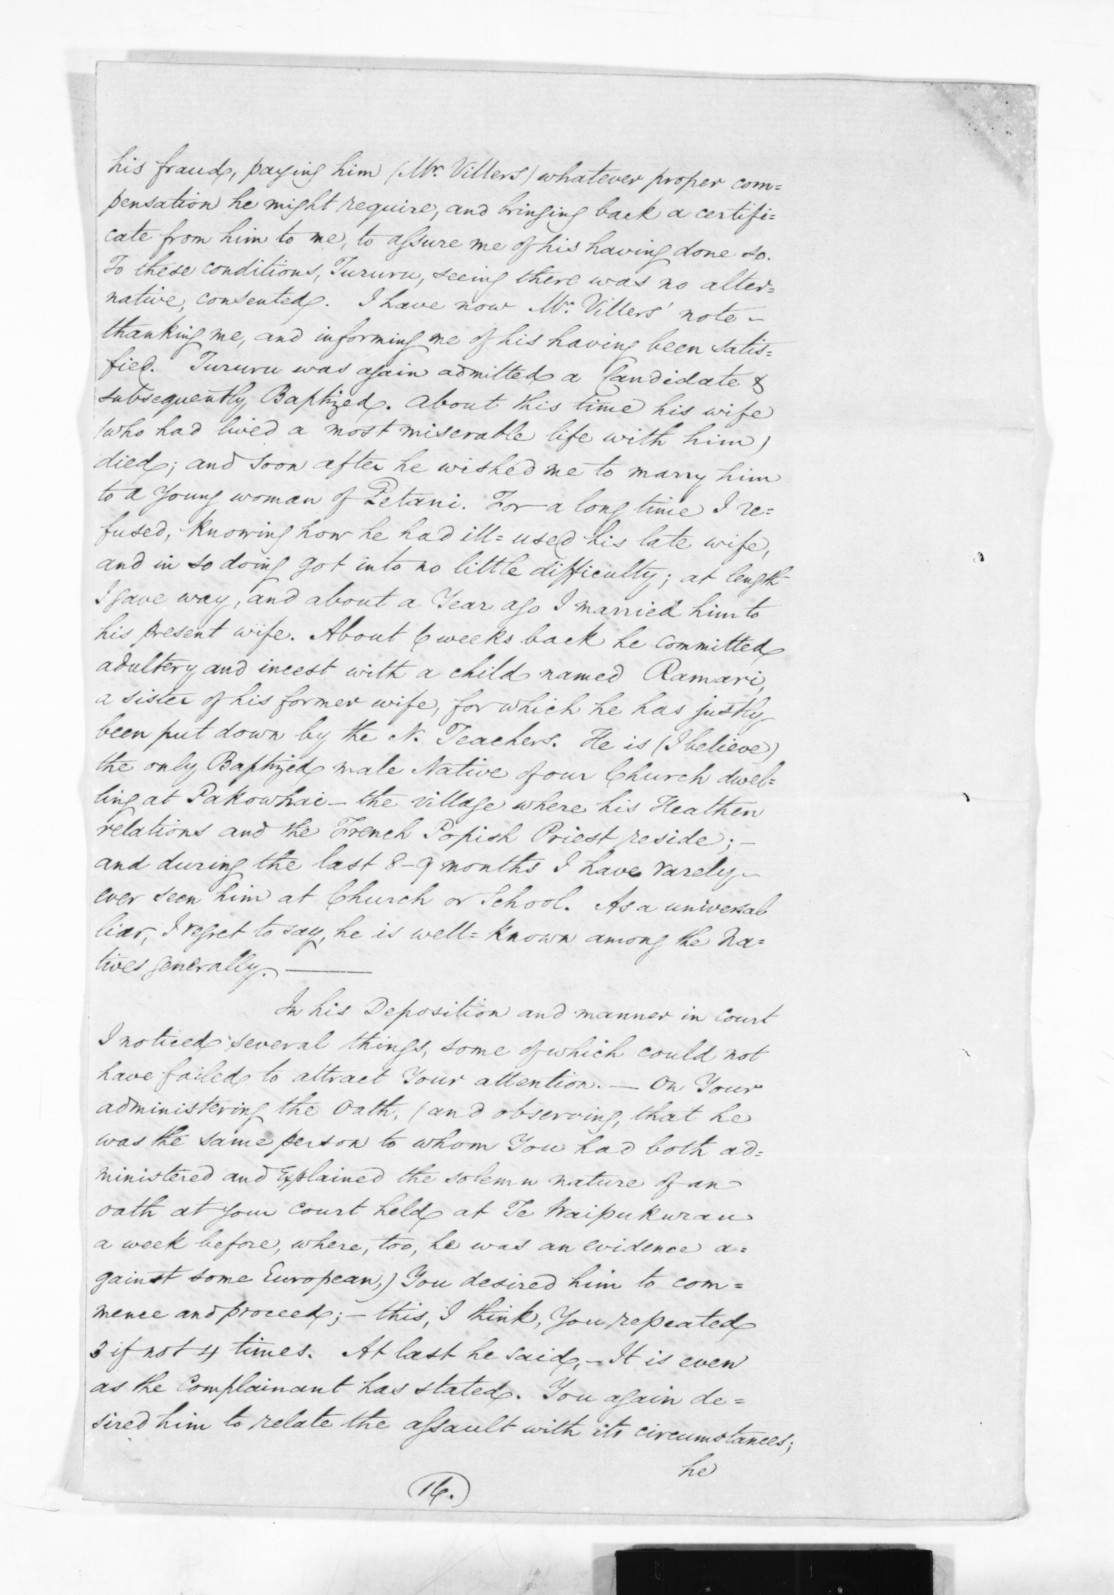 his fraud, paying him (Mr. Villers) whatever proper com=
pensation he might require, and bringing back a certifi=
cate from him to me, to assure me of his having done so.
To these conditions, Tururu, seeing there was no alter=
native, consented. I have now Mr. Villers' note –
thanking me, and informing me of his having been satis=
fied. Tururu was again admitted a Candidate &
subsequently Baptized. About this time his wife
(who had lived a most miserable life with him)
died; and soon after he wished me to marry him
to a Young woman of Petani. For a long time I re=
fused, knowing how he had ill=used his late wife,
and in so doing got into no little difficulty; at length
I gave way, and about a Year ago I married him to
his present wife. About 6 weeks back he committed
adultery and incest with a child named Ramari,
a sister of his former wife, for which he has justly
been put down by the N. Teachers. He is (I believe)
the only Baptized male Native of our Church dwel=
ling at Pakowhai – the village where his Heathen
relations and the French Popish Priest reside; –
and during the last 8–9 months I have rarely –
ever seen him at Church or School. As a universal
liar, I regret to say, he is well=known among the Na=
tives generally. ——
In his Deposition and manner in court
I noticed several things, some of which could not
have failed to attract Your attention. – On Your
administering the Oath, (and observing, that he
was the same person to whom You had both ad=
ministered and Explained the solemn nature of an
oath at your Court held at Te Waipukurau
a week before, where, too, he was an evidence a=
gainst some European,) You desired him to com=
mence and proceed; – this, I think, You repeated
3 if not 4 times. At last he said, – It is even
as the Complainant has stated. You again de=
sired him to relate the assault with its circumstances;
he
(16.)